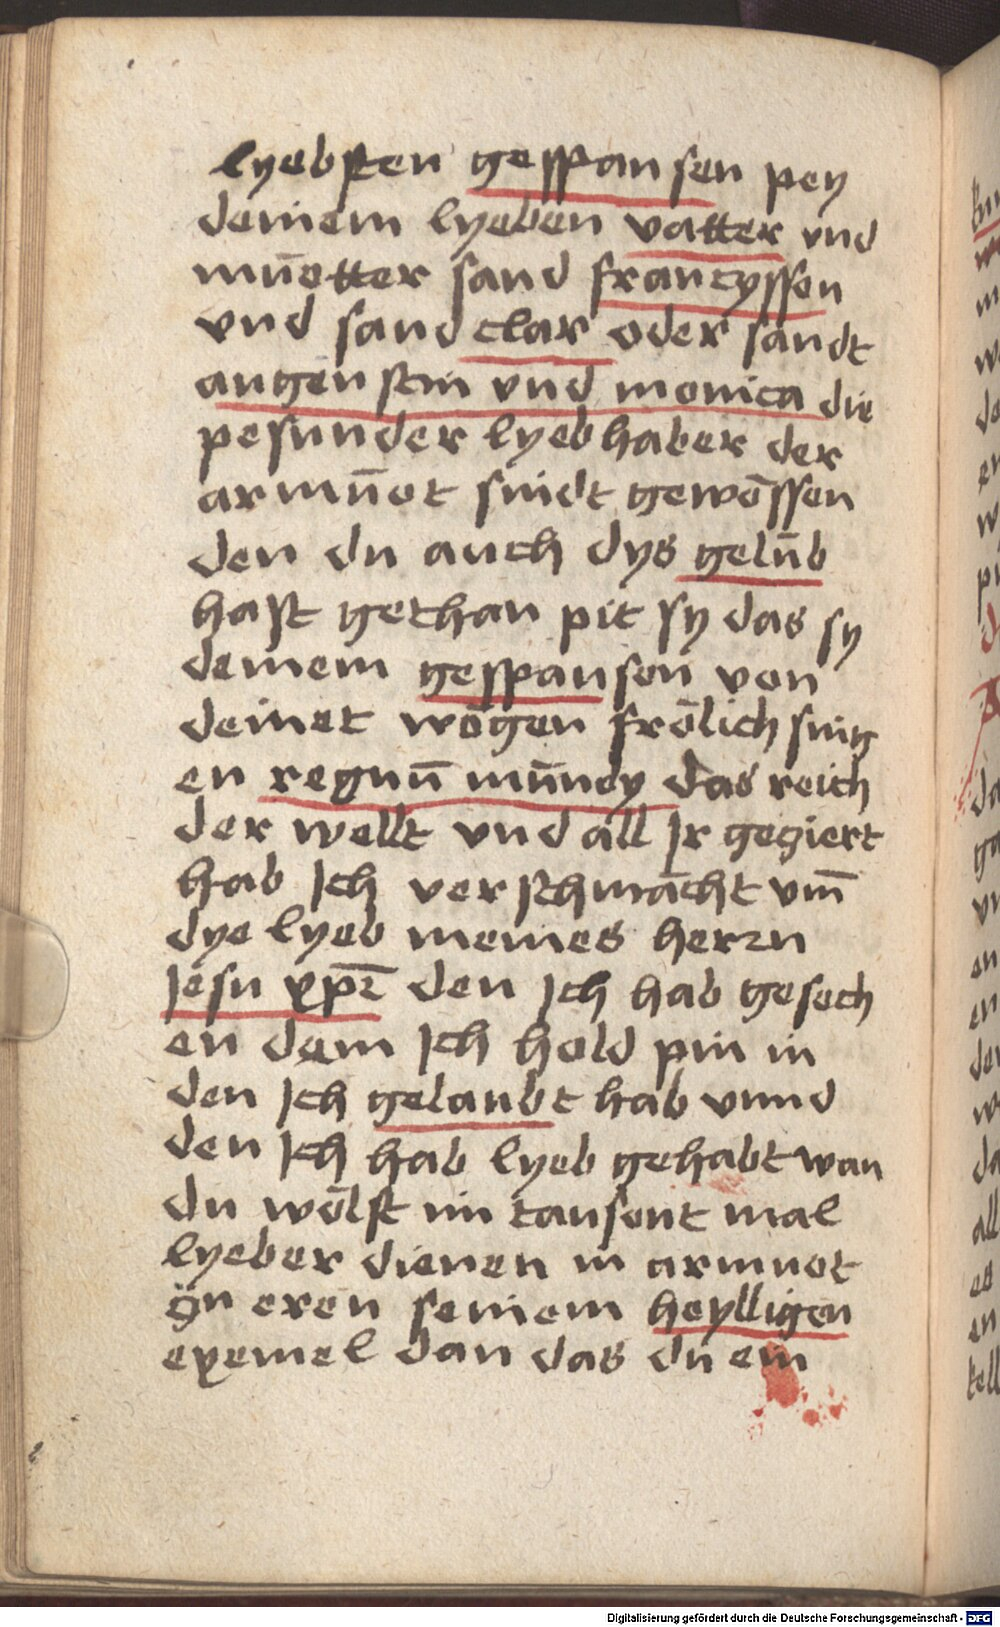 lyebsten gesspansen pey
deinem lyeben vatter vnd
mūetter sand francyssen
vnd sand clar oder sandt
augenstin vnd monica die
pesunder lyebhaber der
armūet sindt gewössen
den du auch dys gelüb
hast gethan pit sy das sy
deinem gesspansen von
deinet wögen frölich sing
en regnū mūndy das reich
der wellt vnd all Jr gegiert
hab Jch verschmächt vm̄
dye lyeb meines herrn
Jesu xpī den Jch hab gesech
en dem Jch hold pin in
den Jch gelaubt hab vnnd
den Jch hab lyeb gehabt wan
du wölst im tausent mal
lyeber dienen in armuet
zu eren seinem heylligen
exempel dan das du ein
Digitalisierung gefördert durch die Deutsche Forschungsgemeinschaft - DFG